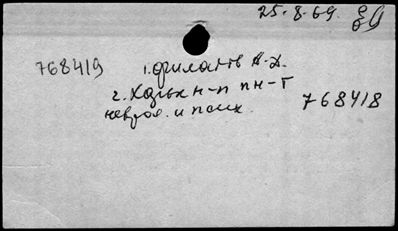 25.8.69.
768419 1. Филатов А.Д.
2. Харьк н-п пн-т
невро. и псих. 768418